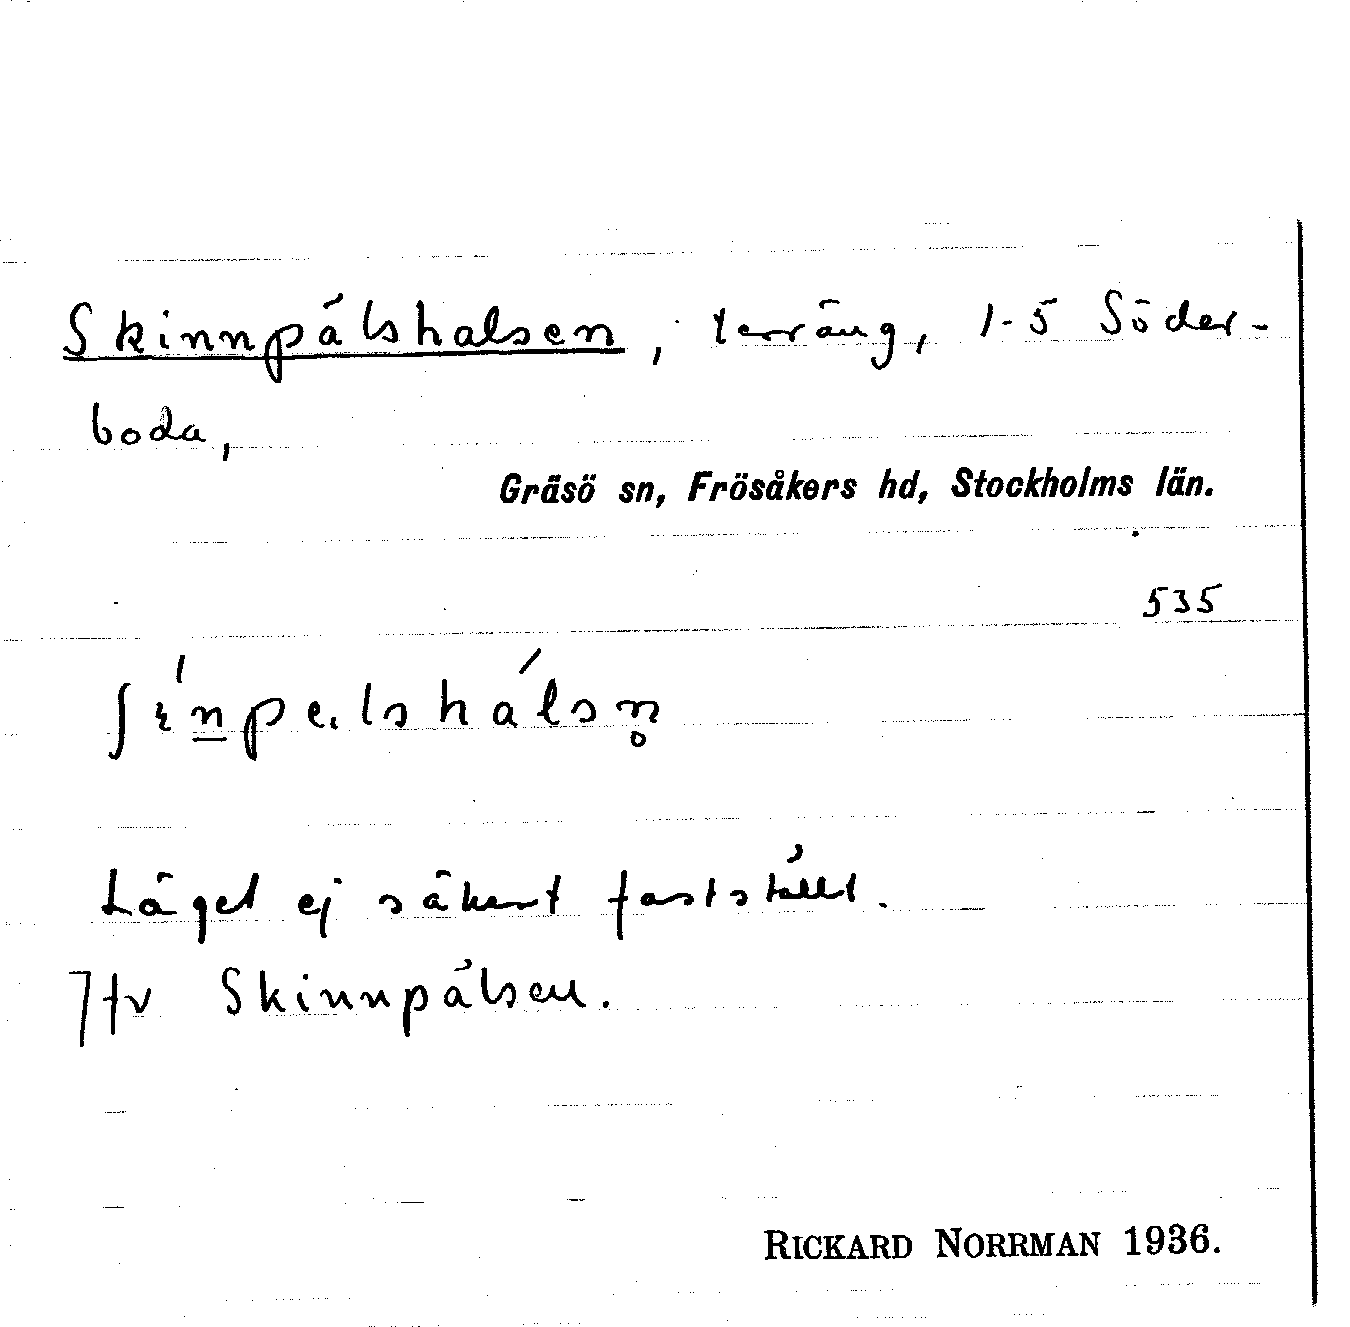 Skinnpälshalsen, terräng, 1-5 Söder-
boda,
Gräsö sn, Frösåkers hd, Stockholms län.
535
Läget ej säkert fastställt.
Jfr Skinnpälsen.
RICKARD NORRMAN 1936.